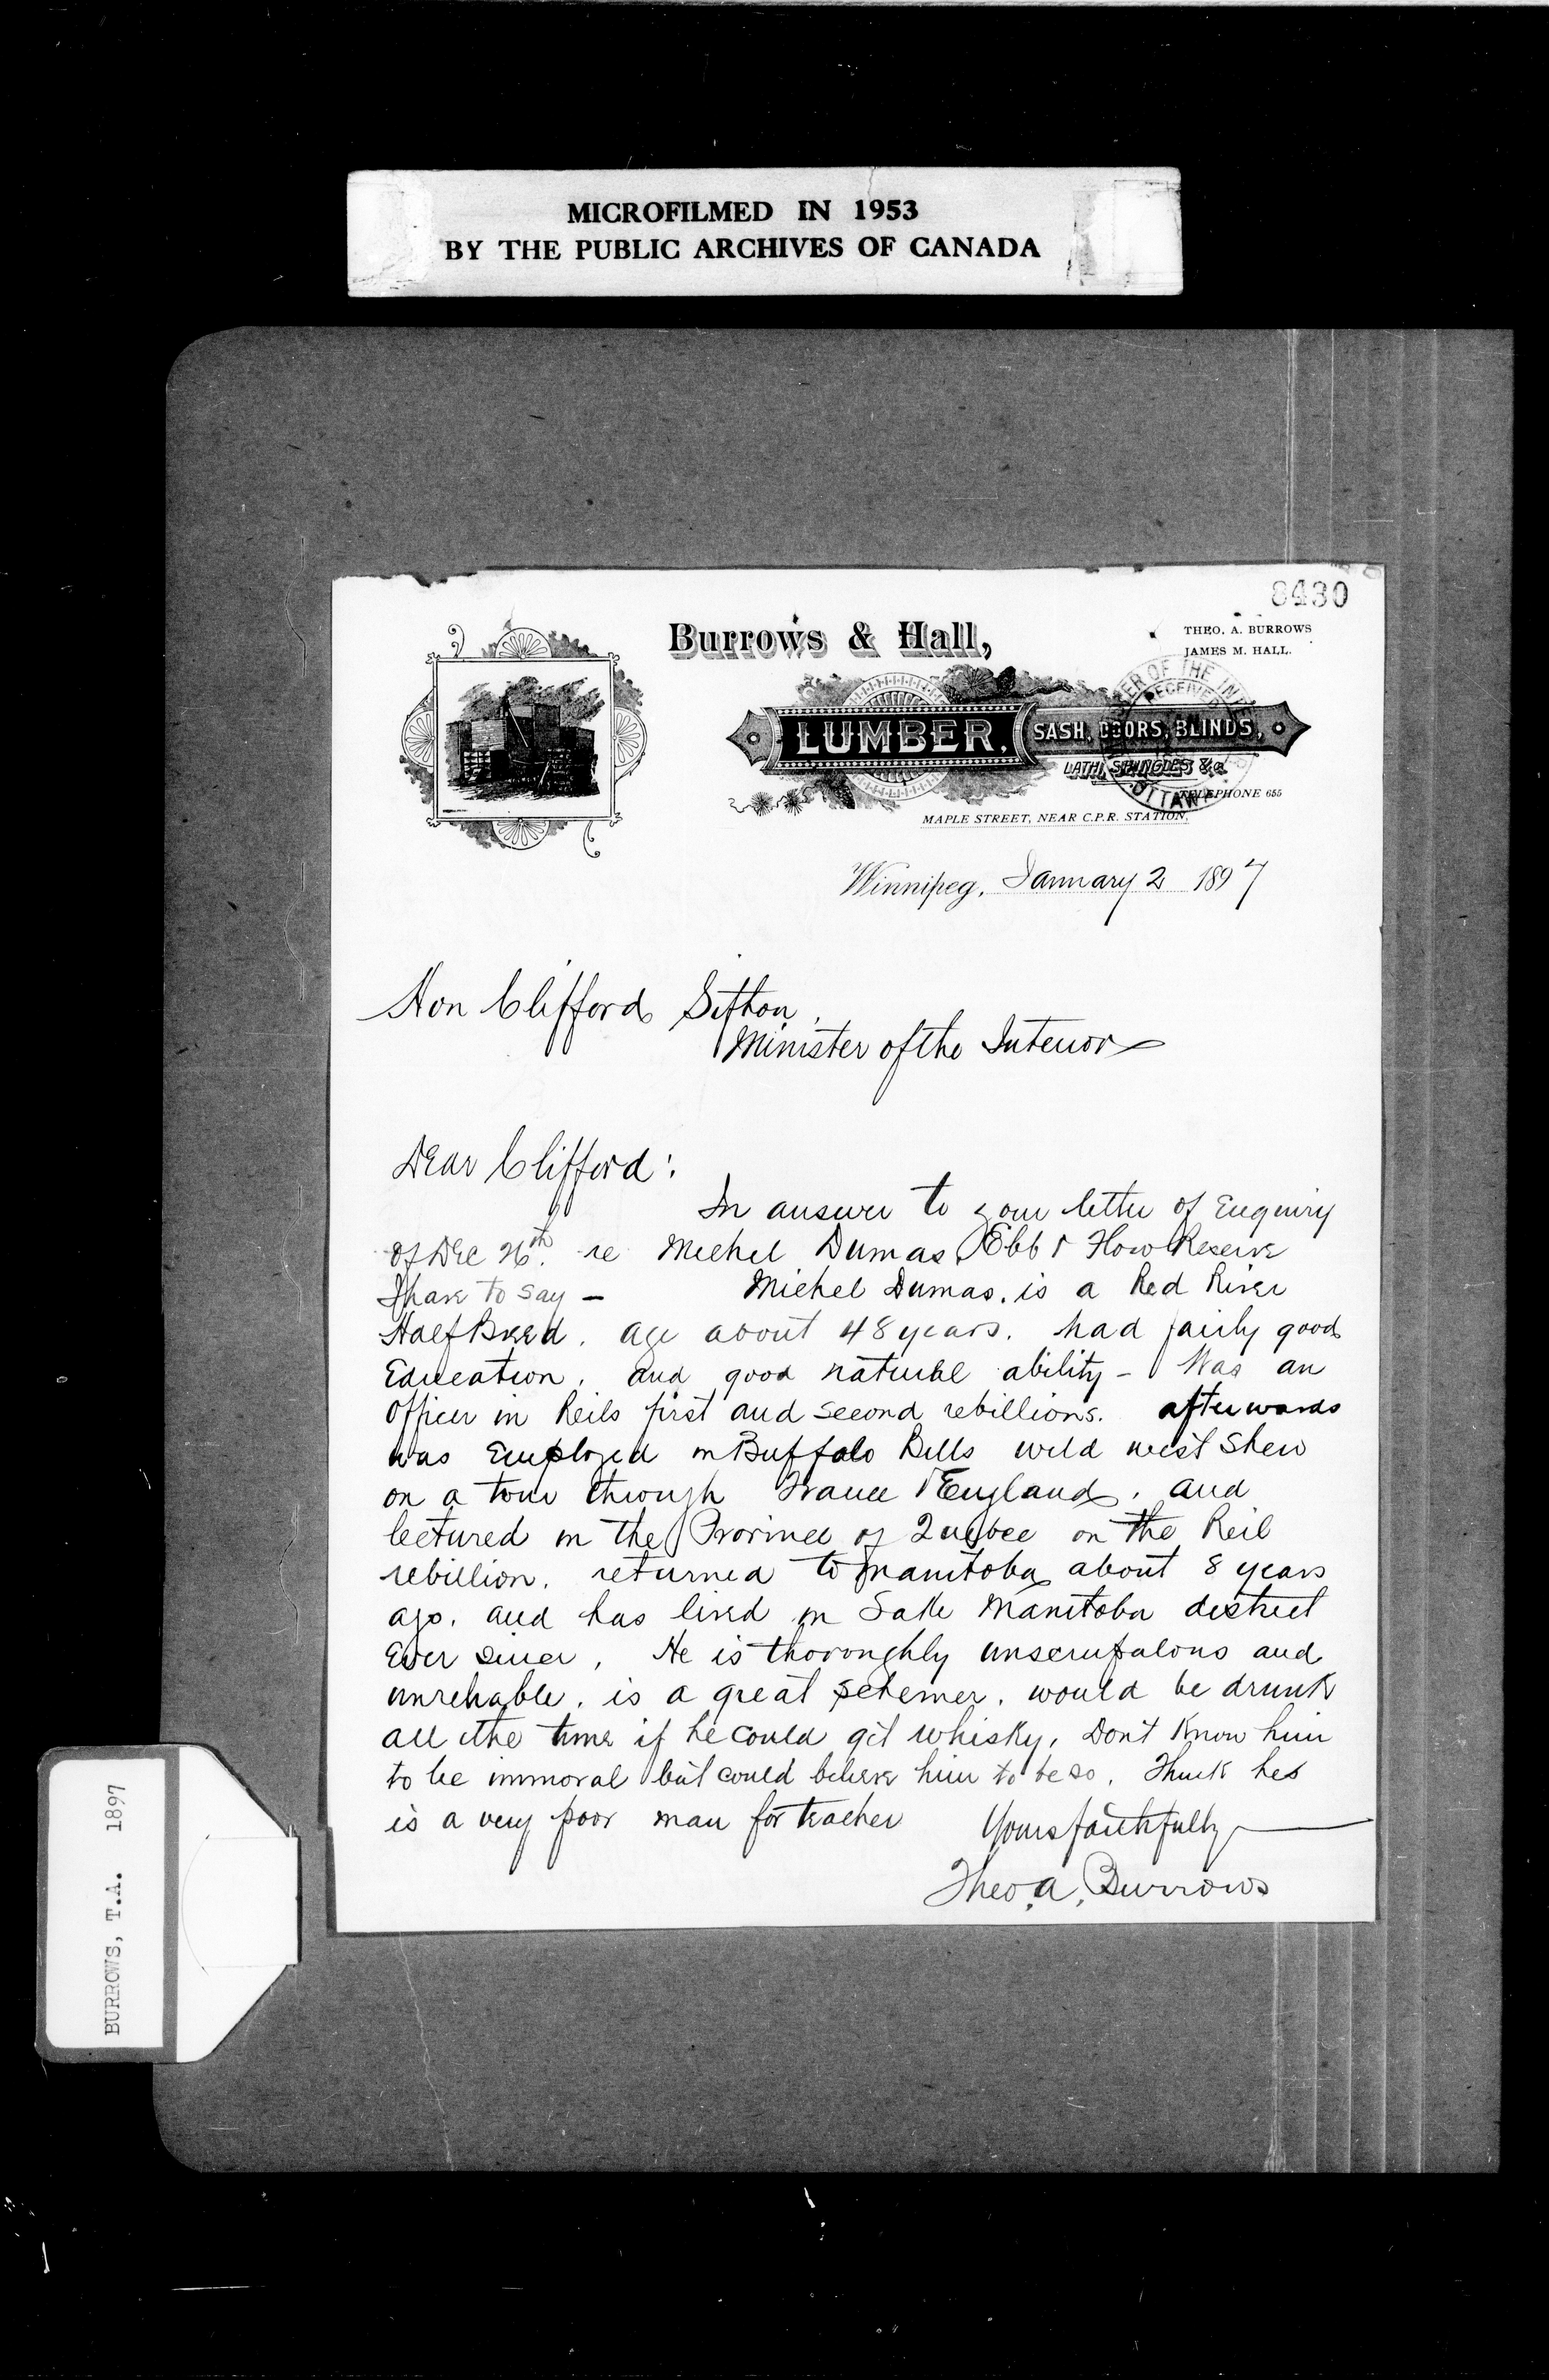 MICROFILMED IN 1953
BY THE PUBLIC ARCHIVES OF CANADA
8430
Burrows & Hall,
THEO. A. BURROWS
JAMES M. HALL.
LUMBER,
SASH, DOORS, BLINDS,
LATH, SHINGLES &c.
TELEPHONE 655
MAPLE STREET, NEAR C.P.R. STATION.
RECEIVED
OTTAWA
Winnipeg, January 2 1897
Hon Clifford Sifton,
Minister of the Interior
Dear Clifford:
In answer to your letter of Enquiry
of Dec 26th. re Michel Dumas, Ebb & Flow Reserve
I have to say — Michel Dumas. is a Red River
Half Breed. age about 48 years. had fairly good
Education. and good natural ability - Was an
Officer in Reils first and second rebillions. afterwards
was Employed in Buffalo Bills wild west Show
on a tour through France & England. and
lectured in the Province of Quebec on the Reil
rebillion. returned to Manitoba about 8 years
ago. and has lived in Lake Manitoba district
Ever since. He is thoroughly unscrupulous and
unreliable. is a great schemer. would be drunk
all the time if he could get whisky. Don't know him
to be immoral but could believe him to be so. Think he
is a very poor man for teacher
Yours faithfully
Theo. A. Burrows
BURROWS, T.A. 1897